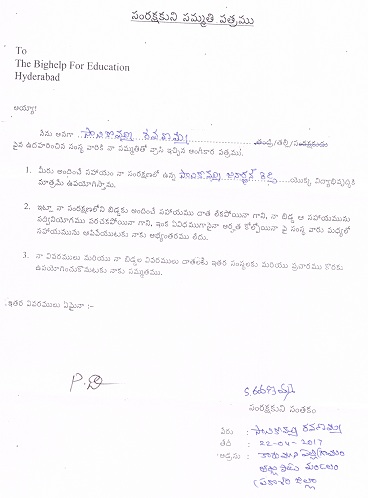 సంరక్షకుని సమ్మతి పత్రము
To
The Bighelp For Education
Hyderabad
అయ్యా!
నేను అనగా తండ్రి/తల్లి/సంరక్షకుడు
పైన ఉదహరించిన సంస్థ వారికి నా సమ్మతితో వ్రాసి ఇచ్చిన అంగీకార పత్రము.
1. మీరు అందించే సహాయం నా సంరక్షణలో ఉన్న యొక్క విద్యాభివృద్ధికి
మాత్రమే ఉపయోగిస్తాము.
2. ఇట్లా నా సంరక్షణలోని బిడ్డకు అందించే సహాయము దాత లేకపోయినా గాని, నా బిడ్డ ఆ సహాయమును
సద్వినియోగము పరచకపోయినా గాని, ఇంక ఏవిధముగానైనా అర్హత కోల్పోయినా పై సంస్థ వారు మధ్యలో
సహాయమును ఆపివేయుటకు నాకు అభ్యంతరము లేదు.
3. నా వివరములు మరియు నా బిడ్డల వివరములు దాతలకు ఇతర సంస్థలకు మరియు ప్రచారము కొరకు
ఉపయోగించుకొనుటకు నాకు సమ్మతము.
ఇతర వివరములు ఏమైనా :-
సంరక్షకుని సంతకం
పేరు :
తేదీ : 22-04-2017
అడ్రసు :